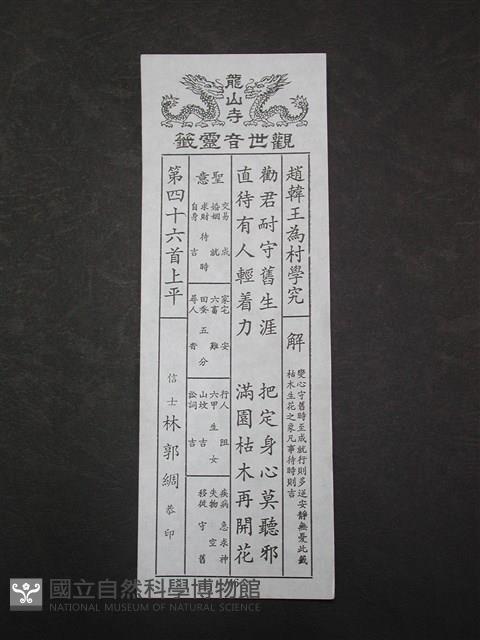 龍山寺
觀世音靈籤
趙韓王為村學究
解
變心守舊時至成就行則多逆安靜無憂此籤
枯木生花之象凡事待時則吉
勸君耐守舊生涯 把定身心莫聽邪
直待有人輕着力 滿園枯木再開花
聖意
交易 成
婚姻 就
求財 待時
自身 吉
家宅 安
六畜 難
田蚕 五分
尋人 杳
行人 阻
六甲 生女
山坟 吉
訟詞 吉
疾病 急求神
失物 空
移徙 守舊
第四十六首上平
信士 林郭綢 恭印
國立自然科學博物館
NATIONAL MUSEUM OF NATURAL SCIENCE